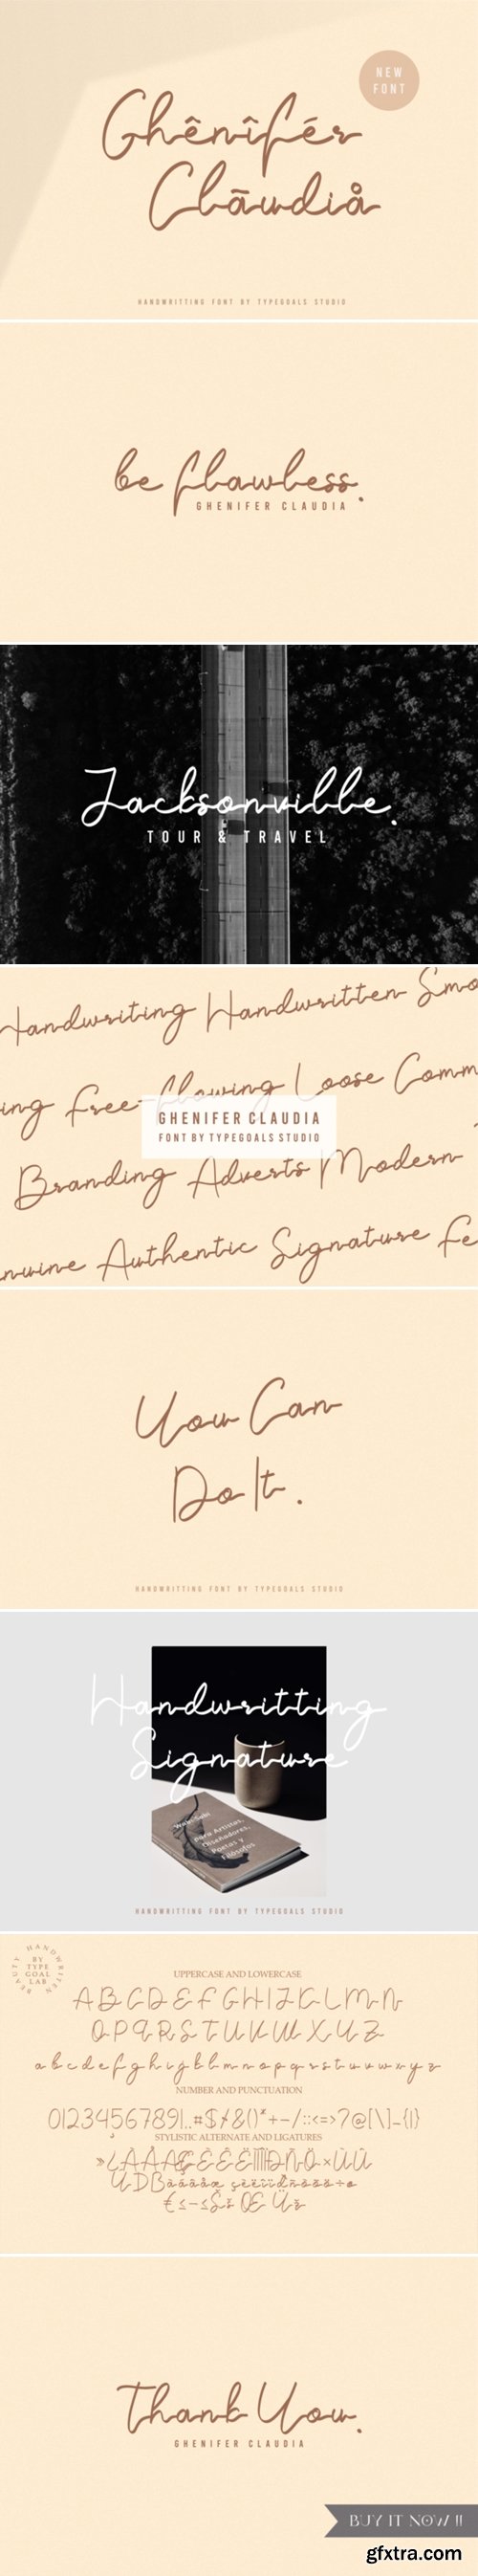 NEW
FONT
Ghênîfér
Clāudiå
HANDWRITTING FONT BY TYPEGOALS STUDIO
be flawless.
GHENIFER CLAUDIA
Jacksonville.
TOUR & TRAVEL
Handwriting Handwritten Smo
ing Free-flowing Loose Comm
GHENIFER CLAUDIA
FONT BY TYPEGOALS STUDIO
Branding Adverts Modern
nuine Authentic Signature Fe
You Can
Do It.
HANDWRITTING FONT BY TYPEGOALS STUDIO
Handwritting
Signature
Wabi-Sabi
para Artistas,
Diseñadores,
Poetas y
Filósofos
HANDWRITTING FONT BY TYPEGOALS STUDIO
BEAUTY HANDWRITEN
BY
TYPE
GOAL
LAB
UPPERCASE AND LOWERCASE
A B C D E F G H I J K L M N
O P Q R S T U V W X Y Z
a b c d e f g h i j k l m n o p q r s t u v w x y z
NUMBER AND PUNCTUATION
0123456789!..#$%&()*+-/:;<=>?@[\]_{|}
STYLISTIC ALTERNATE AND LIGATURES
Thank You.
GHENIFER CLAUDIA
BUY IT NOW !!
gfxtra.com